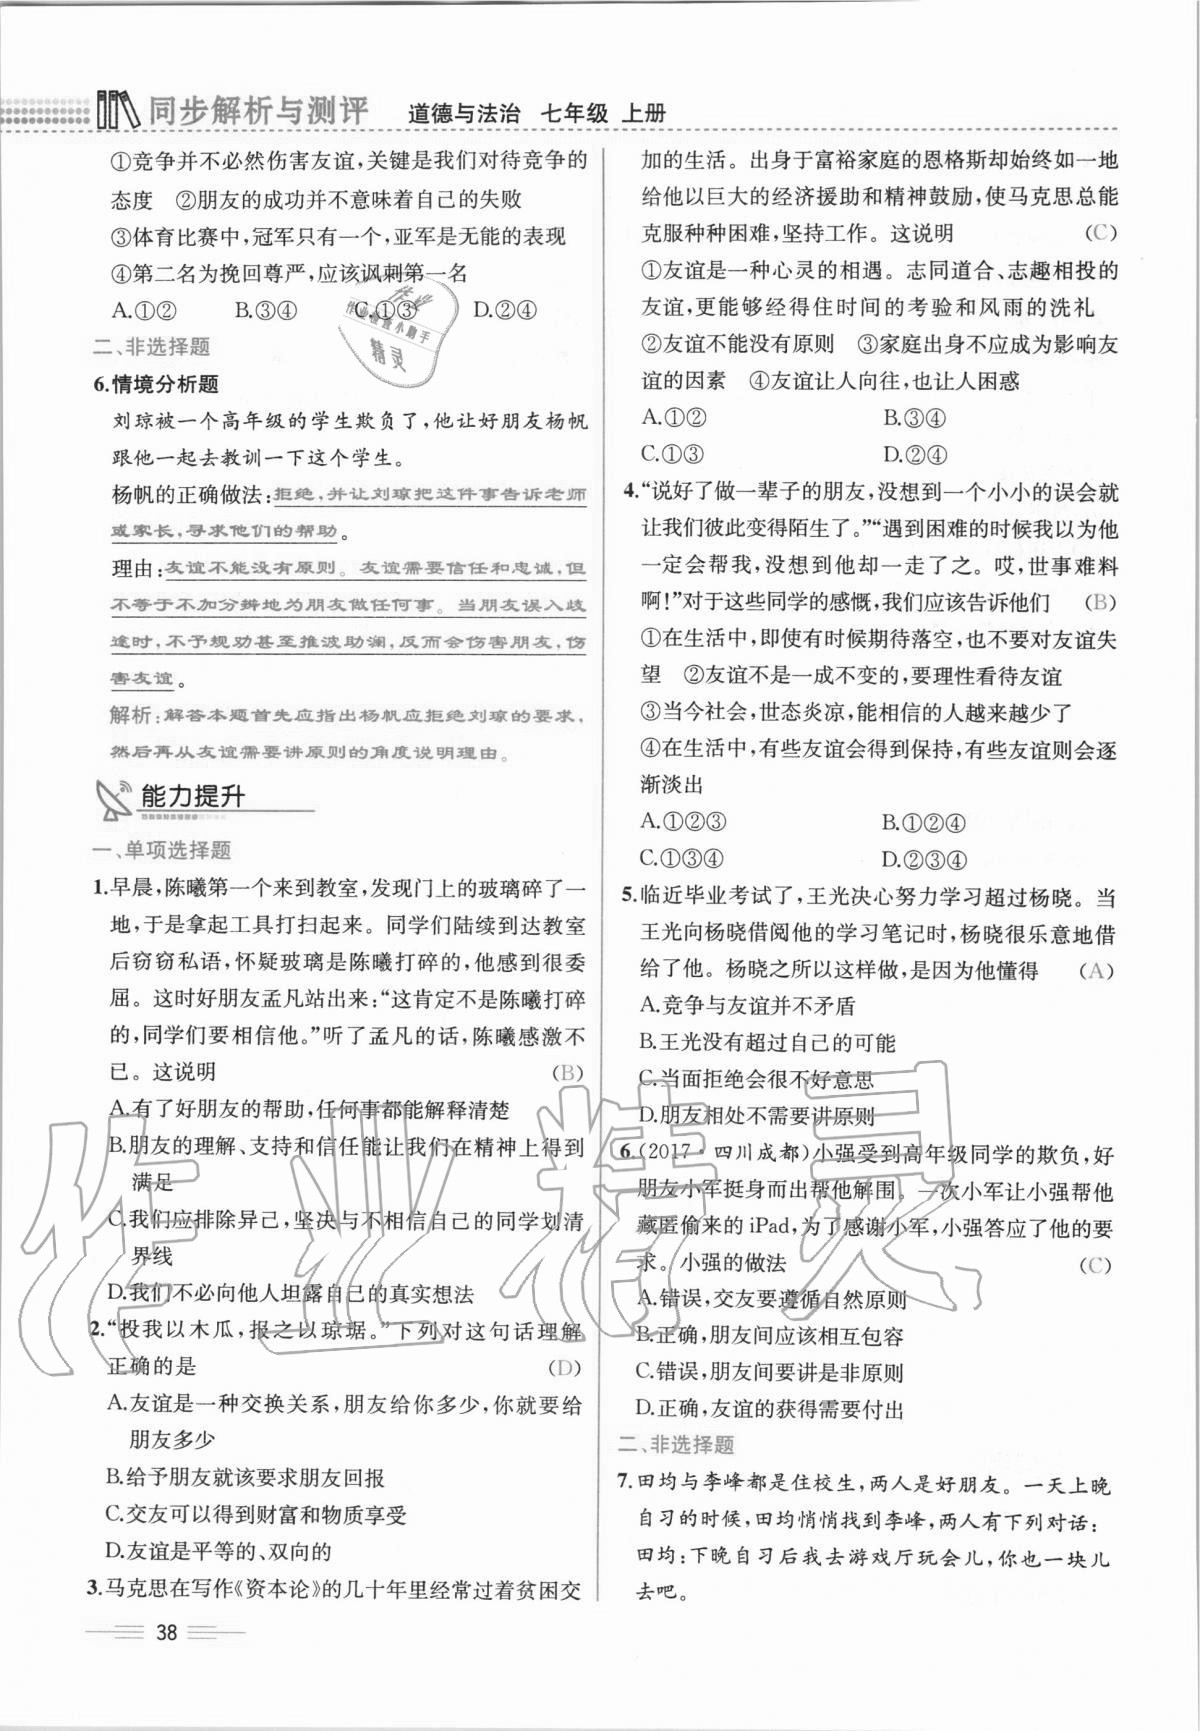 同步解析与测评 道德与法治 七年级 上册
①竞争并不必然伤害友谊,关键是我们对待竞争的
态度 ②朋友的成功并不意味着自己的失败
③体育比赛中,冠军只有一个,亚军是无能的表现
④第二名为挽回尊严,应该讽刺第一名
A.①② B.③④ C.①③ D.②④
二、非选择题
6.情境分析题
刘琼被一个高年级的学生欺负了,他让好朋友杨帆
跟他一起去教训一下这个学生。
杨帆的正确做法:拒绝,并让刘琼把这件事告诉老师
或家长,寻求他们的帮助。
理由:友谊不能没有原则。友谊需要信任和忠诚,但
不等于不加分辨地为朋友做任何事。当朋友误入歧
途时,不予规劝甚至推波助澜,反而会伤害朋友,伤
害友谊。
解析:解答本题首先应指出杨帆应拒绝刘琼的要求,
然后再从友谊需要讲原则的角度说明理由。
能力提升
一、单项选择题
1.早晨,陈曦第一个来到教室,发现门上的玻璃碎了一
地,于是拿起工具打扫起来。同学们陆续到达教室
后窃窃私语,怀疑玻璃是陈曦打碎的,他感到很委
屈。这时好朋友孟凡站出来:“这肯定不是陈曦打碎
的,同学们要相信他。”听了孟凡的话,陈曦感激不
已。这说明 (B)
A.有了好朋友的帮助,任何事都能解释清楚
B.朋友的理解、支持和信任能让我们在精神上得到
满足
C.我们应排除异己,坚决与不相信自己的同学划清
界线
D.我们不必向他人坦露自己的真实想法
2.“投我以木瓜,报之以琼琚。”下列对这句话理解
正确的是 (D)
A.友谊是一种交换关系,朋友给你多少,你就要给
朋友多少
B.给予朋友就该要求朋友回报
C.交友可以得到财富和物质享受
D.友谊是平等的、双向的
3.马克思在写作《资本论》的几十年里经常过着贫困交
38
加的生活。出身于富裕家庭的恩格斯却始终如一地
给他以巨大的经济援助和精神鼓励,使马克思总能
克服种种困难,坚持工作。这说明 (C)
①友谊是一种心灵的相遇。志同道合、志趣相投的
友谊,更能够经得住时间的考验和风雨的洗礼
②友谊不能没有原则 ③家庭出身不应成为影响友
谊的因素 ④友谊让人向往,也让人困惑
A.①② B.③④
C.①③ D.②④
4.“说好了做一辈子的朋友,没想到一个小小的误会就
让我们彼此变得陌生了。”“遇到困难的时候我以为他
一定会帮我,没想到他却一走了之。哎,世事难料
啊!”对于这些同学的感慨,我们应该告诉他们 (B)
①在生活中,即使有时候期待落空,也不要对友谊失
望 ②友谊不是一成不变的,要理性看待友谊
③当今社会,世态炎凉,能相信的人越来越少了
④在生活中,有些友谊会得到保持,有些友谊则会逐
渐淡出
A.①②③ B.①②④
C.①③④ D.②③④
5.临近毕业考试了,王光决心努力学习超过杨晓。当
王光向杨晓借阅他的学习笔记时,杨晓很乐意地借
给了他。杨晓之所以这样做,是因为他懂得 (A)
A.竞争与友谊并不矛盾
B.王光没有超过自己的可能
C.当面拒绝会很不好意思
D.朋友相处不需要讲原则
6.(2017·四川成都)小强受到高年级同学的欺负,好
朋友小军挺身而出帮他解围。一次小军让小强帮他
藏匿偷来的 iPad,为了感谢小军,小强答应了他的要
求。小强的做法 (C)
A.错误,交友要遵循自然原则
B.正确,朋友间应该相互包容
C.错误,朋友间要讲是非原则
D.正确,友谊的获得需要付出
二、非选择题
7.田均与李峰都是住校生,两人是好朋友。一天上晚
自习的时候,田均悄悄找到李峰,两人有下列对话:
田均:下晚自习后我去游戏厅玩会儿,你也一块儿
去吧。
作业精灵
作业
作业检查小助手
精灵